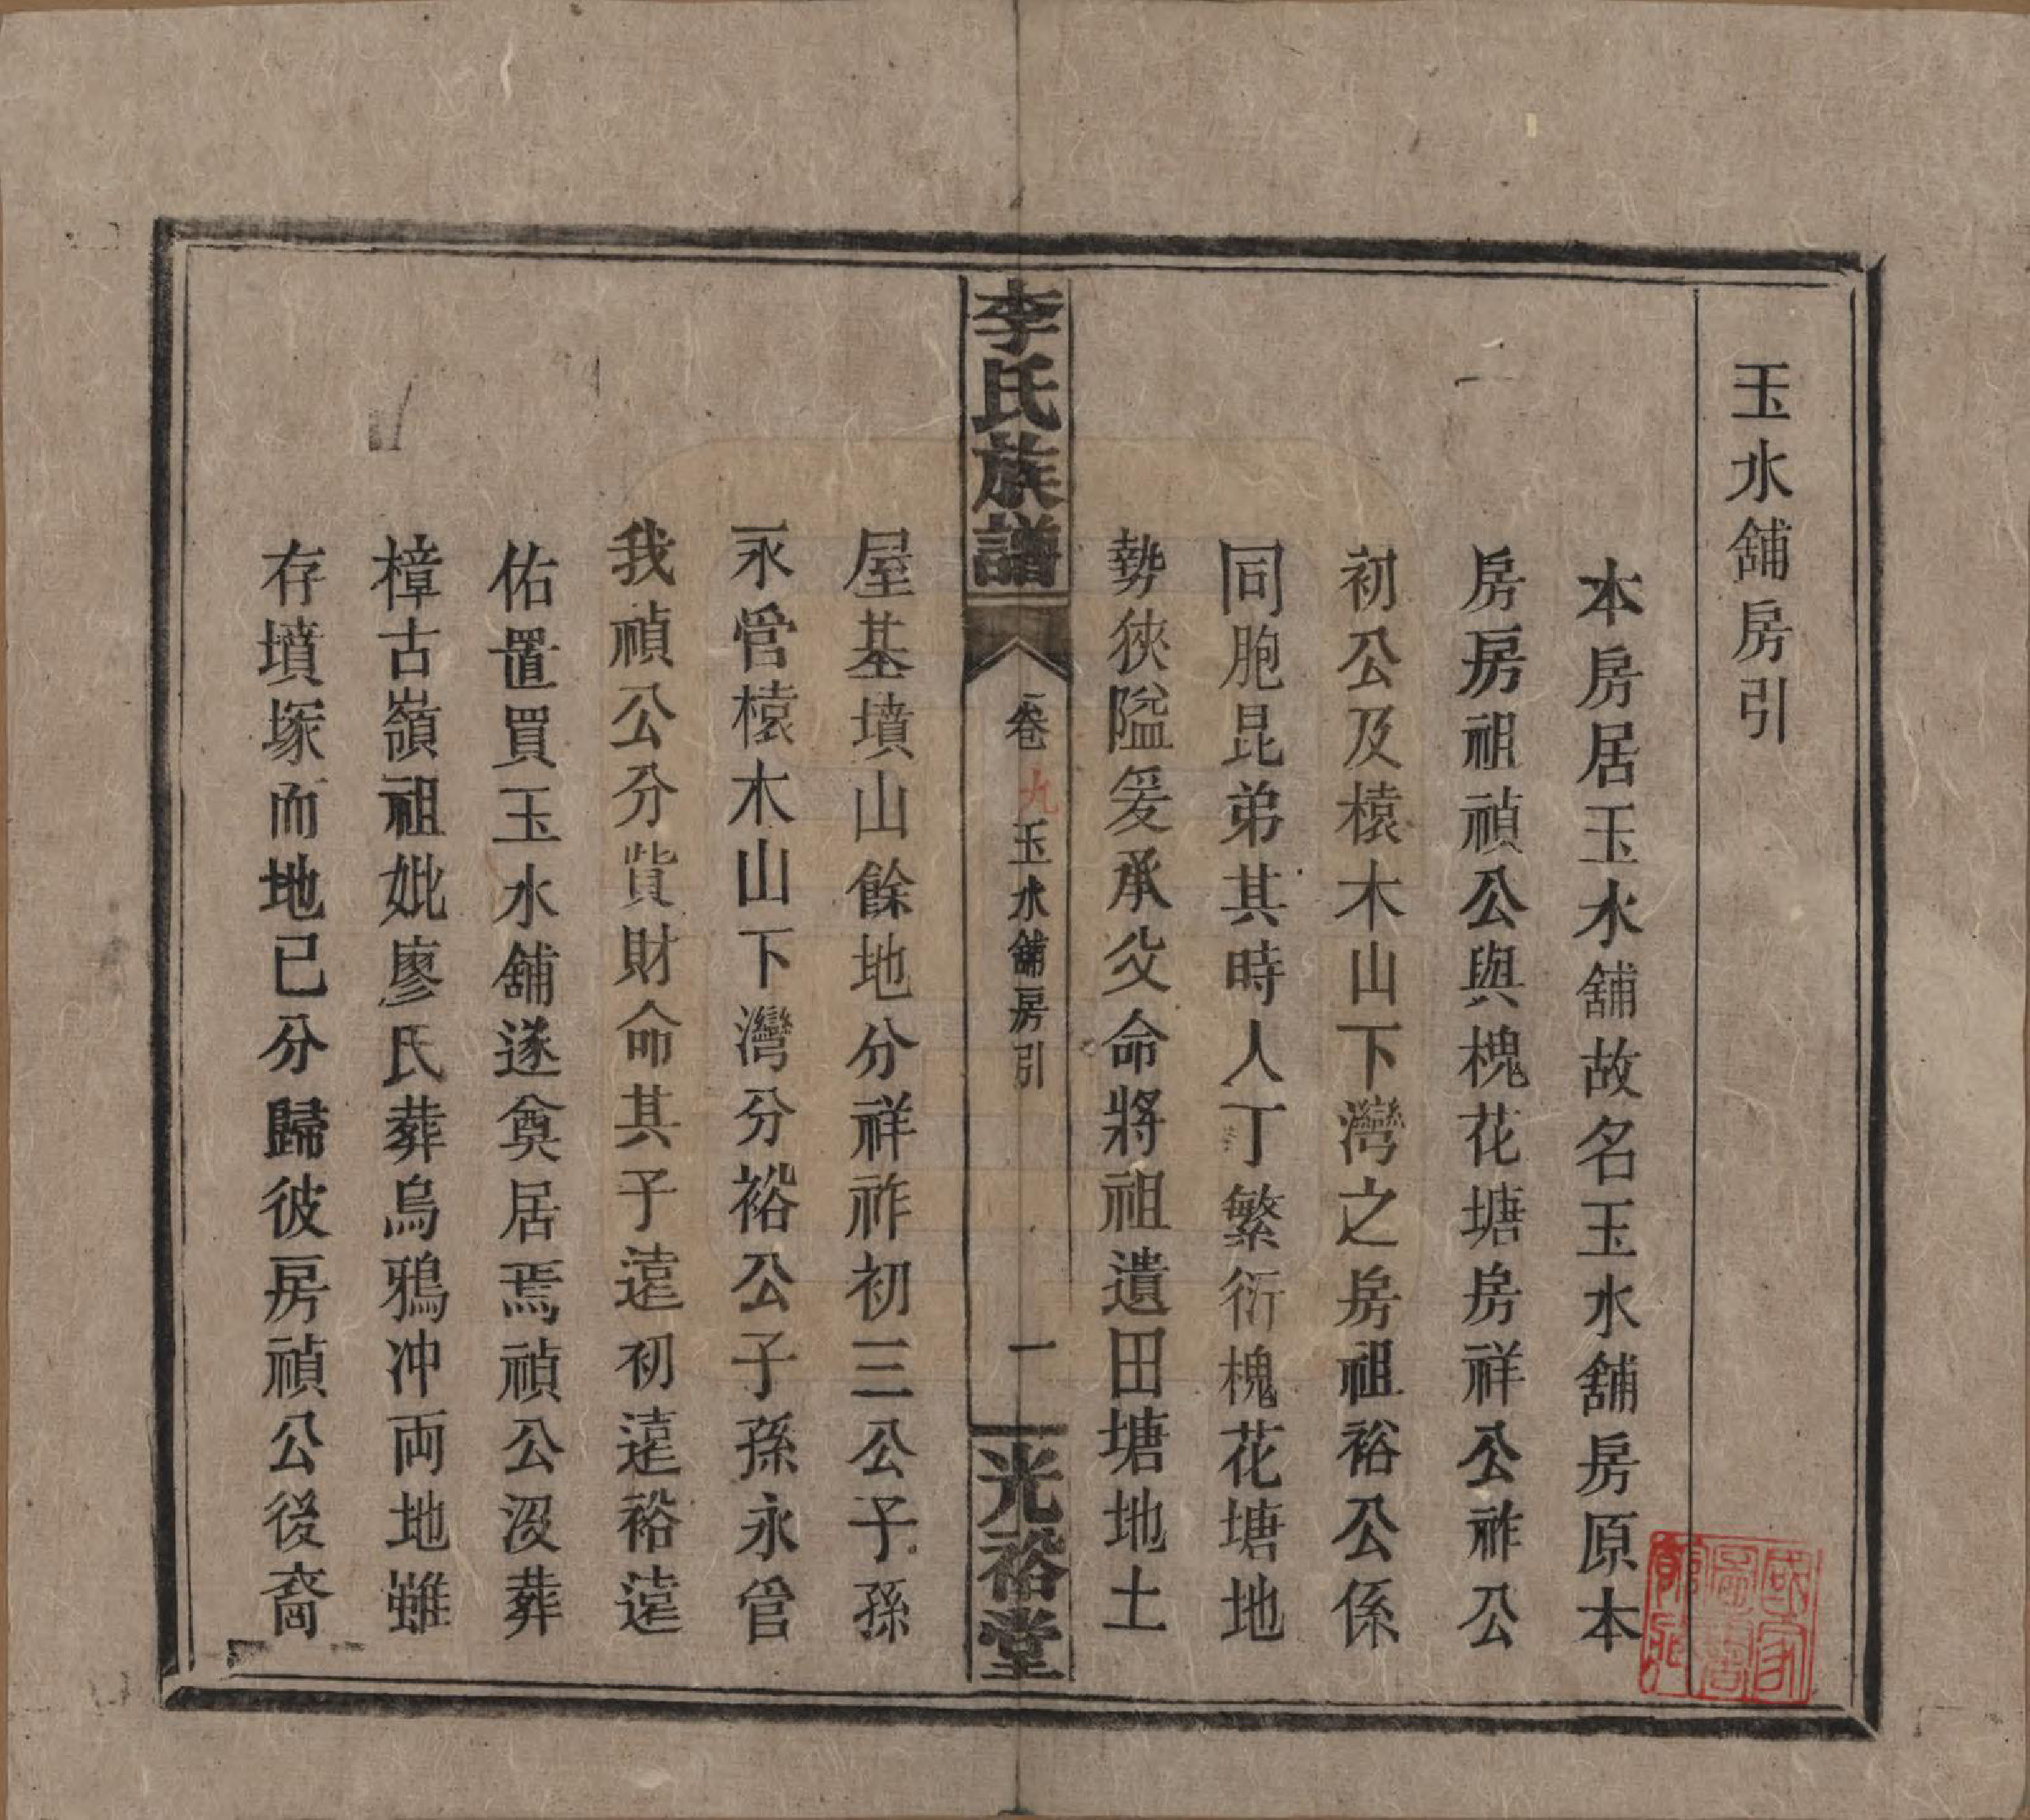 玉水舖房引
本房居玉水舖故名玉水舖房原本
房房祖禎公與槐花塘房祥公祚公
初公及榬木山下灣之房祖裕公係
同胞昆弟其時人丁繁衍槐花塘地
勢狹隘爰承父命將祖遺田塘地土
李氏族譜
卷九
玉水舖房引
一
光裕堂
屋基墳山餘地分祥祚初三公子孫
永管榬木山下灣分裕公子孫永管
我禎公分貲財命其子遠初遠裕遠
佑置買玉水舖遂奠居焉禎公沒葬
樟古嶺祖妣廖氏葬烏鴉冲両地雖
存墳塚而地已分歸彼房禎公後裔
國家
圖書
館藏